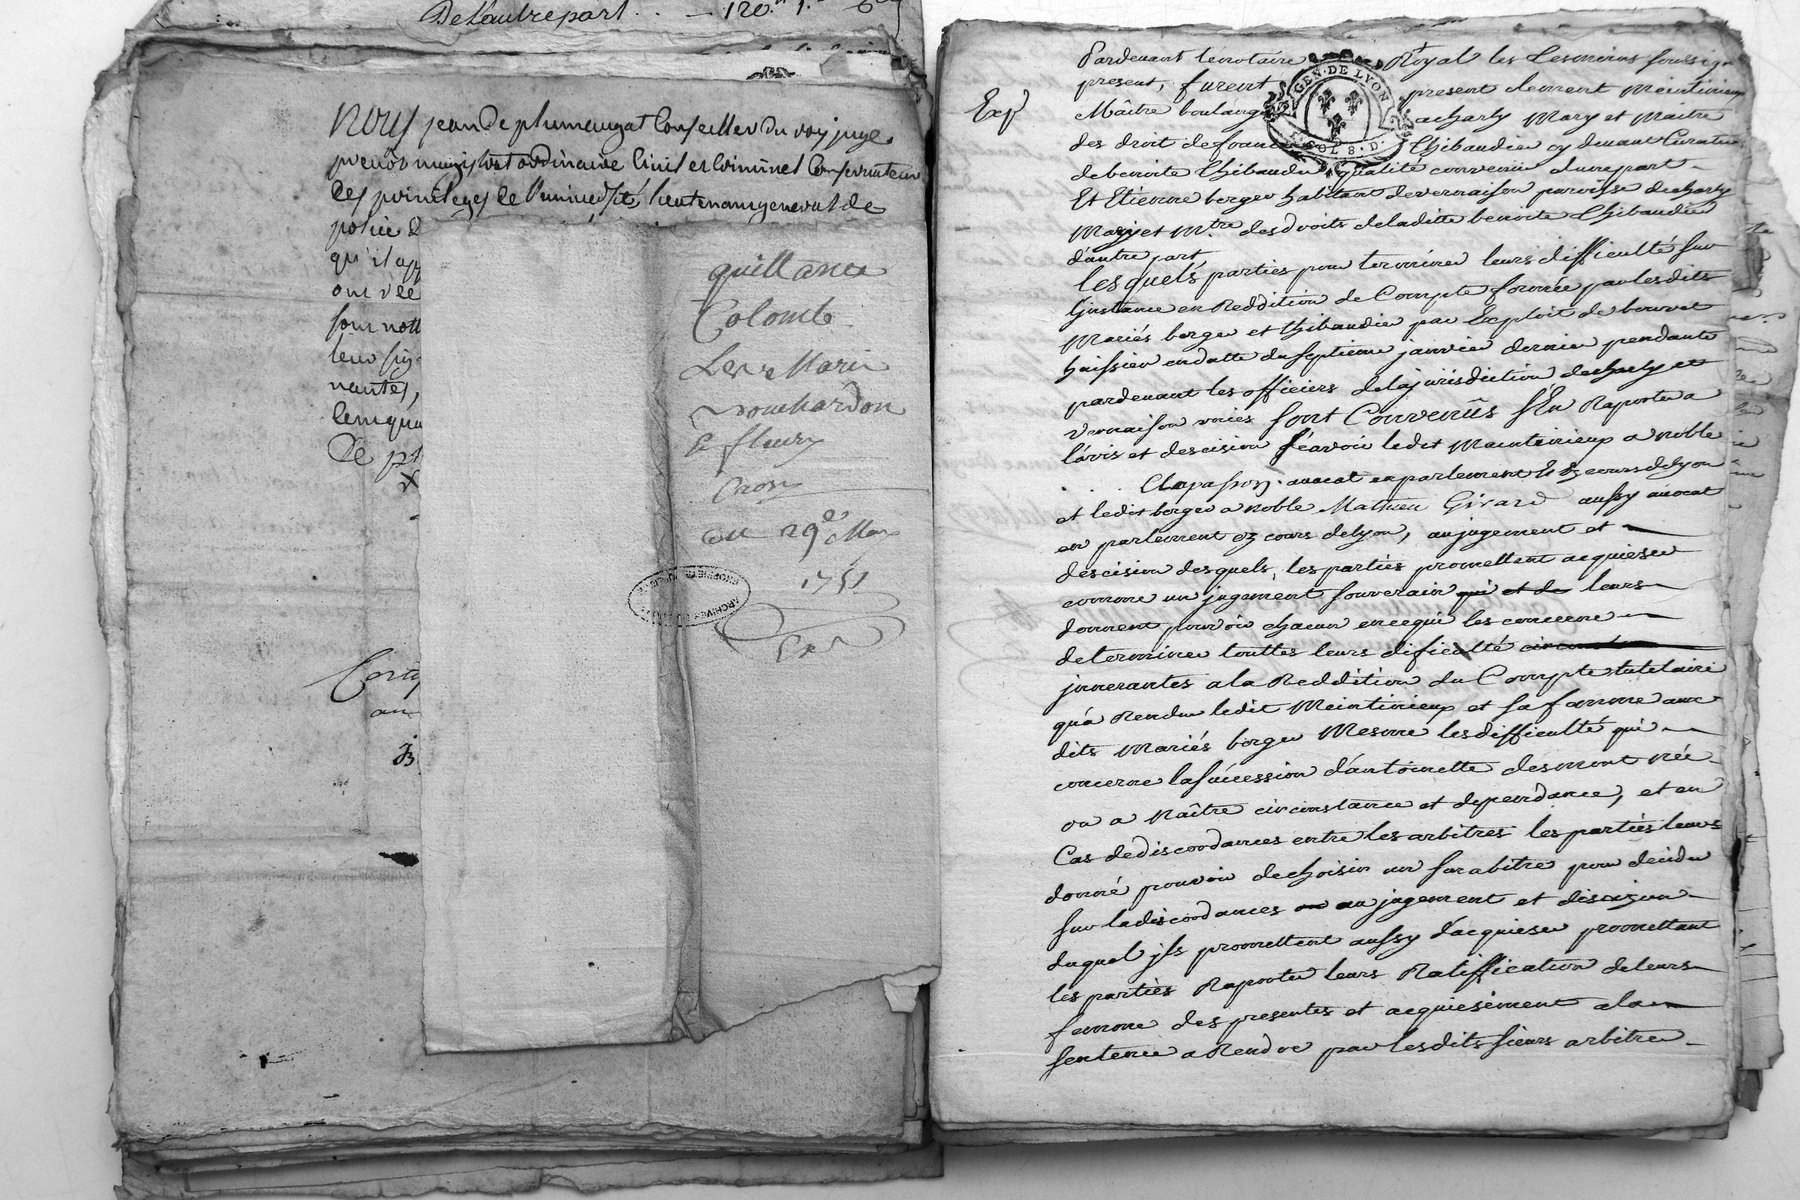 Delautrepart . . — 120
Nous jean De plumaugat Conseiller du roy juge
prevôt magistrat ordinaire Civil et Criminel Conservateur
Des privileges de l'université, lieutenant general de
police &
qu'il app
ont vee
sous nott
leur sig
nantes,
lemqua
De pt
quittance
Colomb
Les Marie
Bouchardon
& fleury
Cros
du 29e May
1751
Exp
PROPRIETE PUBLIQUE
ARCHIVES
Exp
Pardevant le notaire Royal les tesmoins soussig
present, furent present clement Maintinieux
GEN. DE LYON
Maître boulanger acharly Mary et Maitre
des droit de france Thibaudier cy devant Curateur
SOLS. D.
de benoite Thibaudier qualité convenüe d'une part
Et Etienne berger habitant de vernaison paroisse de charly
Mary et Mtre des droits de laditte benoite Thibaudier
d'autre part
lesquels parties pour terminer leurs difficulté sur
Linstance en Reddition de Compte formée par lesdits
Mariés berger et thibaudier par Exploit de bouvet
huissier en datte du septieme janvier dernier pendante
pardevant les officiers de la jurisdiction de charly et
vernaison unies sont Convenûs s'En Raporter a
l'avis et descision sçavoir ledit Maintinieux a noble
Clapasson avocat en parlement & es cours de lyon
et ledit berger a noble Mathieu Girard aussy avocat
en parlement es cours de lyon, au jugement et
descision desquels, les parties promettent acquieser
comme un jugement souverain qui et de leurs
donnent pouvoir chacun en ce qui les concerne
determiner touttes leurs dificulté circonst
jnnerantes a la Reddition du Compte tutelaire
qu'a Rendu ledit Maintinieux et sa femme aux
dits Mariés berger Mesme les difficulté qui
concerne la succession d'antoinette desmont née
ou a Naître circonstance et dependance, et en
Cas de discordances entre les arbitres les parties leurs
donné pouvoir de choisir un surarbitre pour decider
sur la discordances au jugement et discizion
duquel jls promettent aussy d'acquieser promettant
les parties Raporter leurs Ratiffication de leurs
femme des presentes et acquiesement a la
sentence a Rendre par lesdits sieurs arbitres